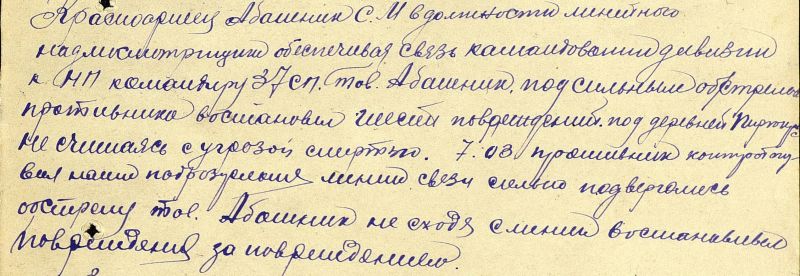 Краснодармец Абашник С. М в должности линейного
надмкмотрщика обеспечивая связь командования дивизии
к НП командиру 37 СП. тов. Абашник. под сильным обстрелом
противника востановил шесть повреждений. под деревней
не считаясь с угрозой смертью. 7.03 противник контротаку
вал наши подрозделения линия связи сильно подвергалась
обстрелу тов. Абашник не сходя с линии востанавливал
повреждения за повреждением.